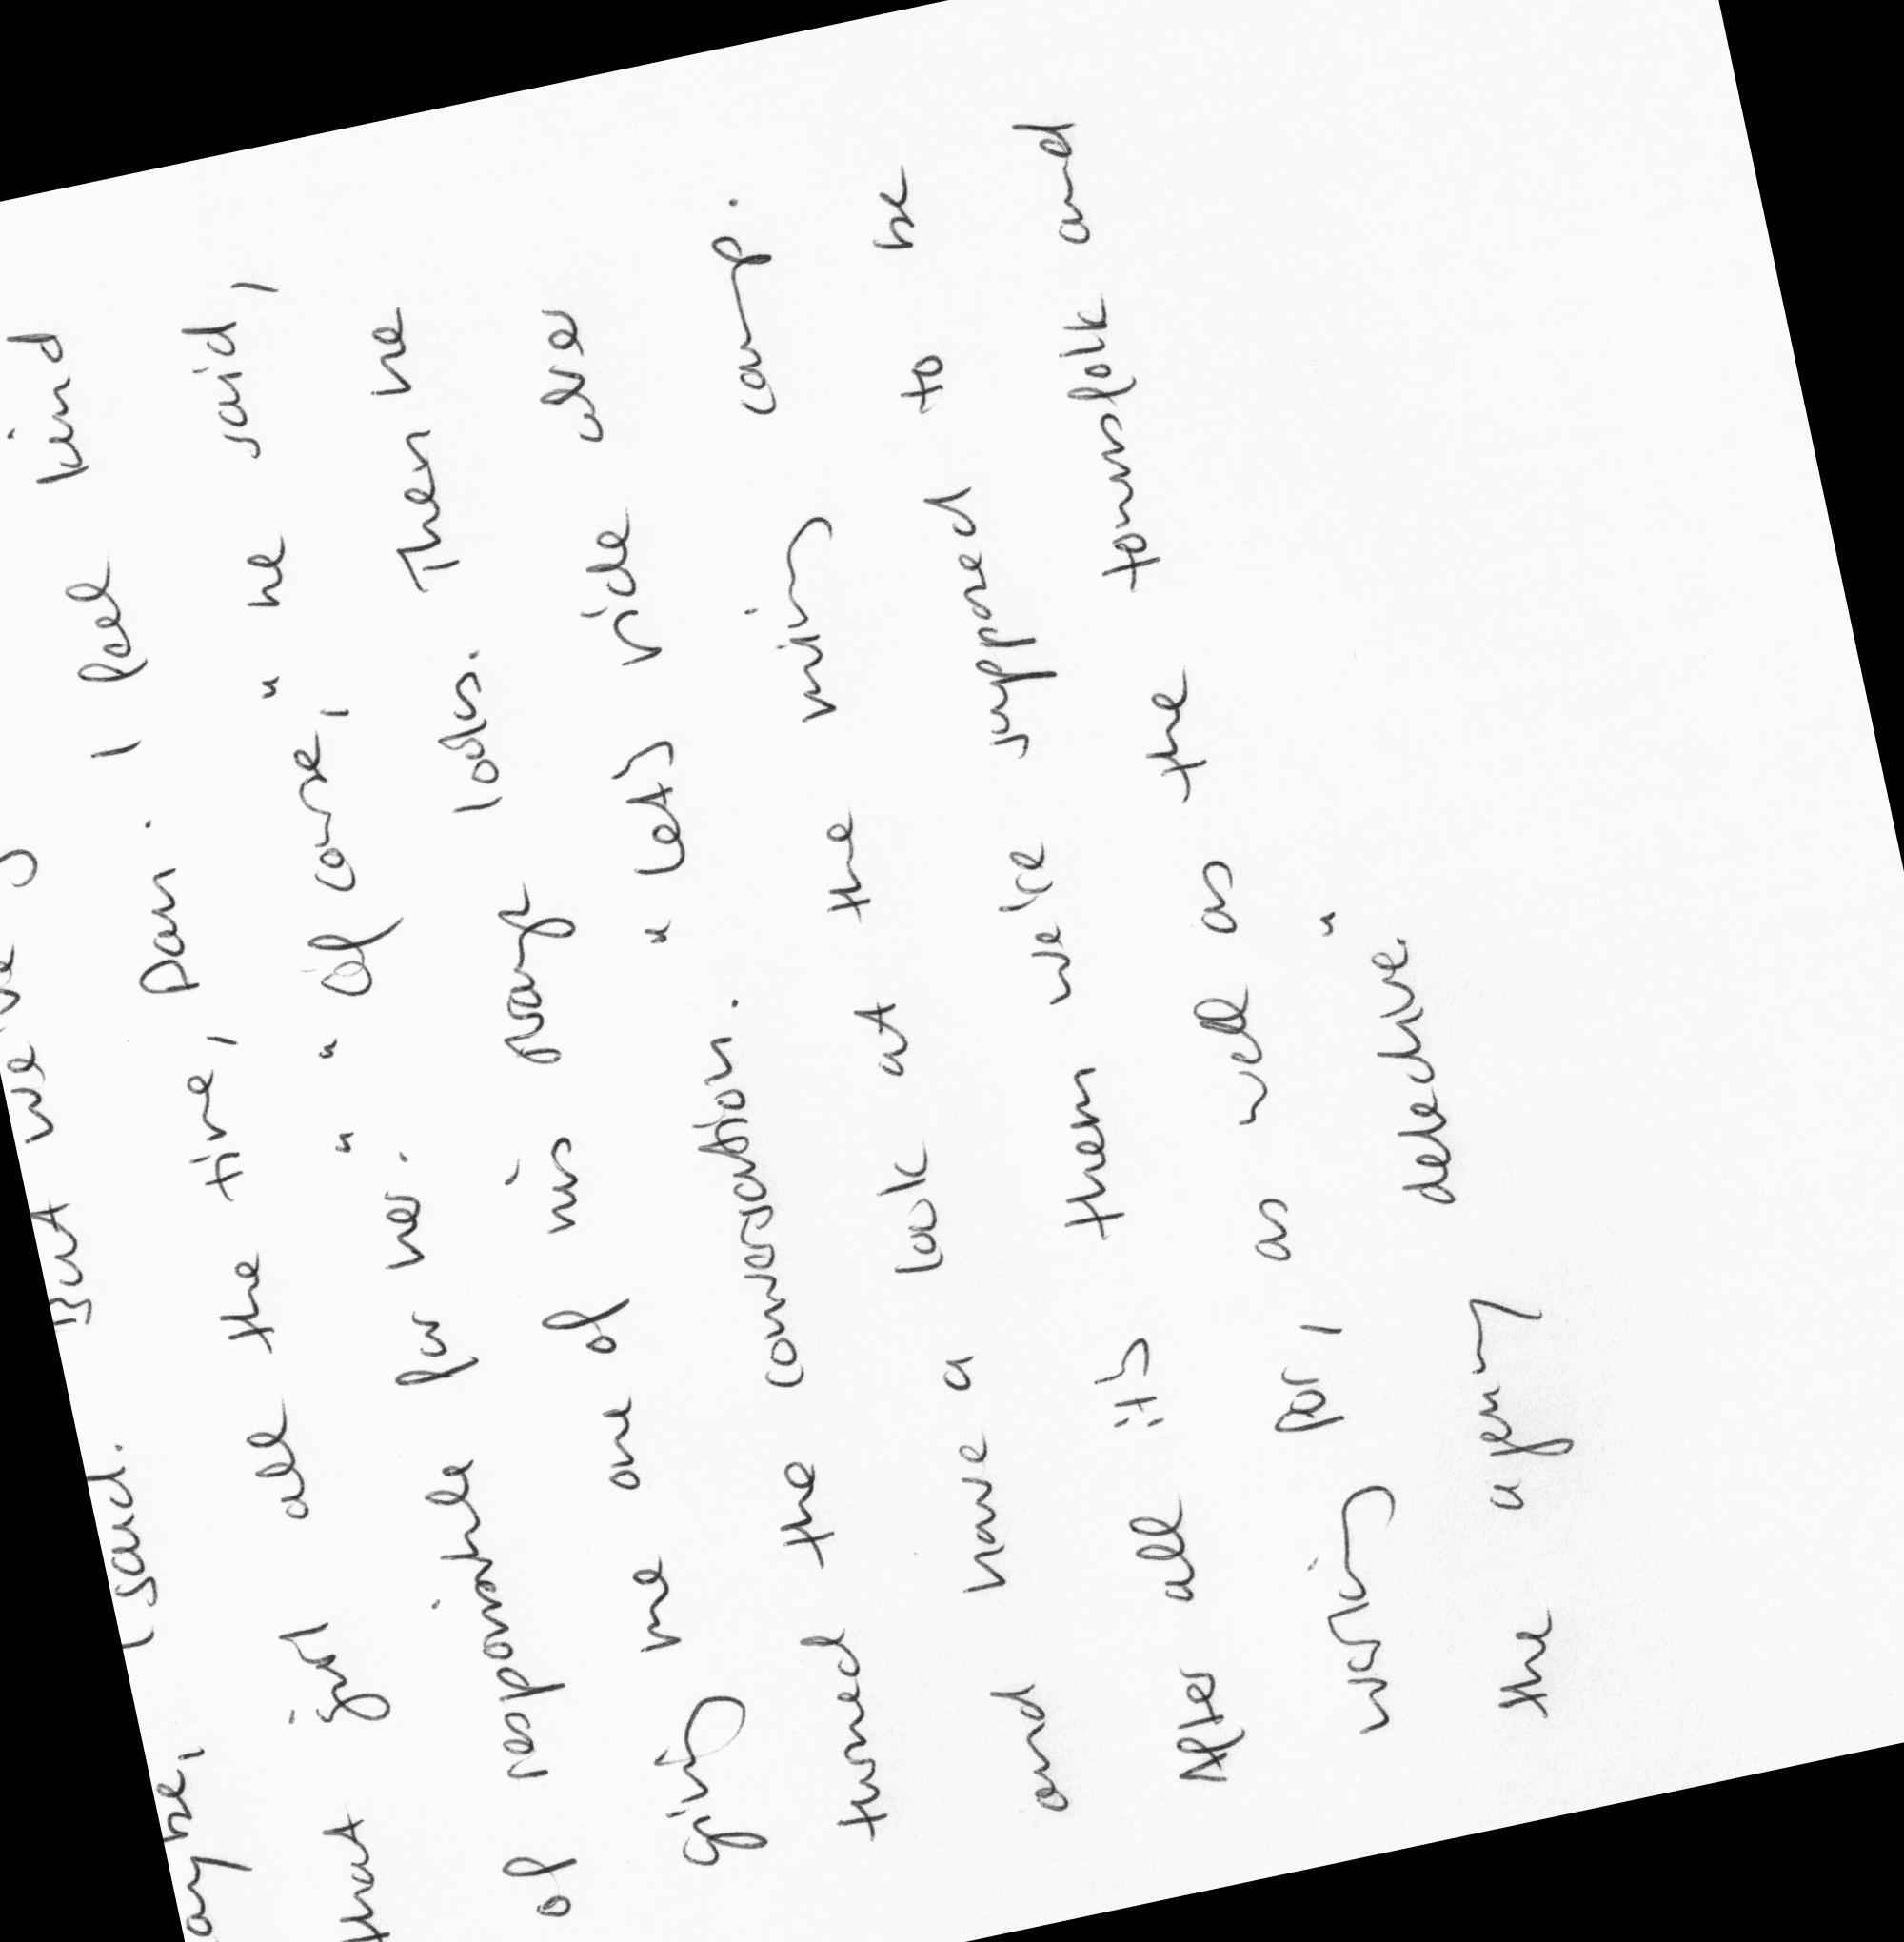 aybe, I said. But we've
that girl all the time, Dan. I feel kind
of responsible for her." "Of course," he said,
giving me one of his sharp looks. Then he
turned the conversation. "Let's ride over
and have a look at the mining camp.
After all it's them we're supposed to be
working for, as well as the townsfolk and
the agency detective."